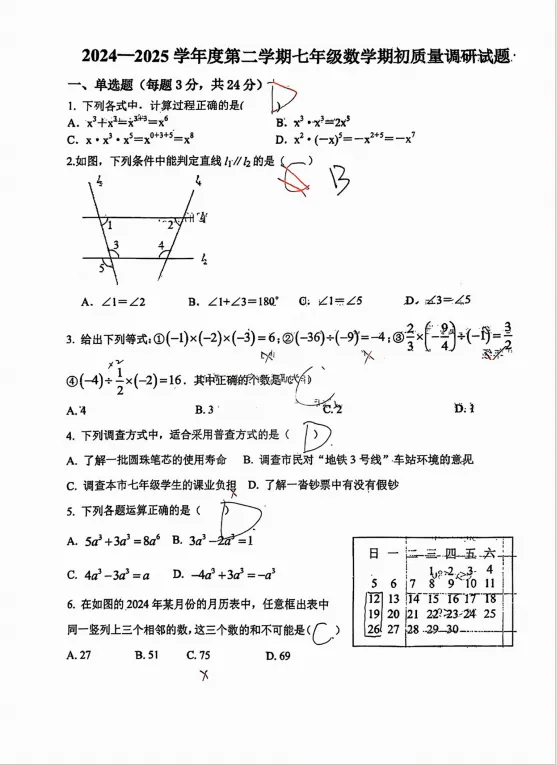 2024—2025 学年度第二学期七年级数学期初质量调研试题
一、单选题（每题 3 分，共 24 分）
D
1. 下列各式中，计算过程正确的是(
A. x³+x³=x³⁺³=x⁶ B. x³·x³=2x³
C. x·x³·x⁵=x⁰⁺³⁺⁵=x⁸ D. x²·(−x)⁵=−x²⁺⁵=−x⁷
2.如图，下列条件中能判定直线 l₁∥l₂ 的是（ ）
B
1 2
3 4
5
l₂
A. ∠1=∠2 B. ∠1+∠3=180° C. ∠1=∠5 D. ∠3=∠5
3. 给出下列等式：①(−1)×(−2)×(−3)=6；②(−36)÷(−9)=−4；③2/3×(−9/4)÷(−1)=3/2
×2
④(−4)÷1/2×(−2)=16．其中正确的个数是
A. 4 B. 3 C. 2 D. 1
4. 下列调查方式中，适合采用普查方式的是（ D ）
A. 了解一批圆珠笔芯的使用寿命 B. 调查市民对“地铁 3 号线”车站环境的意见
C. 调查本市七年级学生的课业负担 D. 了解一沓钞票中有没有假钞
5. 下列各题运算正确的是（ D
A. 5a³+3a³=8a⁶ B. 3a³−2a³=1
C. 4a³−3a³=a D. −4a³+3a³=−a³
日 一 二 三 四 五 六
1 2 3 4
5 6 7 8 9 10 11
12 13 14 15 16 17 18
19 20 21 22 23 24 25
26 27 28 29 30
6. 在如图的 2024 年某月份的月历表中，任意框出表中
同一竖列上三个相邻的数，这三个数的和不可能是( C ）
A. 27 B. 51 C. 75 D. 69